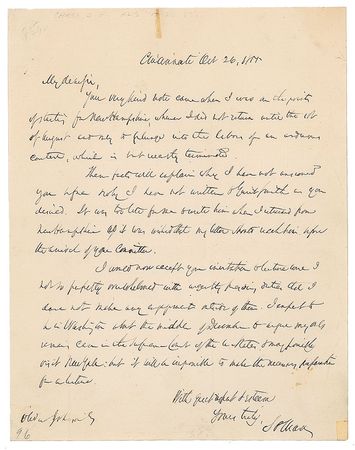 Cincinnati Oct 26, 1855
My dear Sir,
Your very kind note came when I was on the point
of starting for New Hampshire, whence I did not return until the 1st
of August and only to plunge into the labors of an arduous
contest, which is but recently terminated.
These facts will explain why I have not answered
you before & why I have not written to Gerrit Smith as you
desired. It was too late for me to write him when I returned from
New Hampshire as I was informed that my letter should reach him before
the arrival of your Committee.
I cannot now accept your invitation to lecture here. I
not so perfectly overwhelmed with urgently pressing duties that I
dare not make any appointment outside of them. I expect to
be in Washington about the middle of December to argue my only
remaining case in the Supreme Court of the U. States & may possibly
visit New York: but it will be impossible to make the necessary preparation
for a lecture.
With great respect & esteem
Yours truly,
S P Chase
Oliver Johnson Esq
96